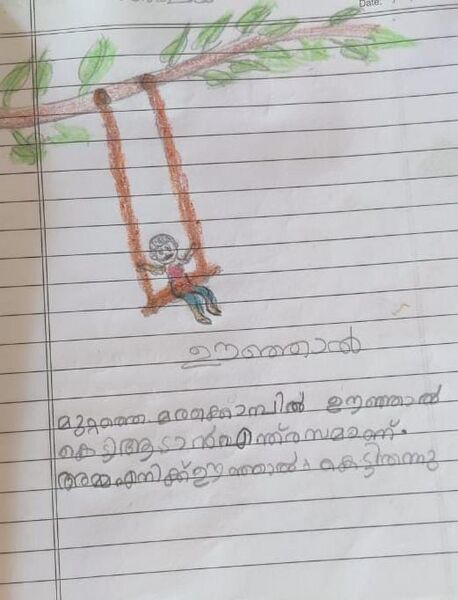 Date:
ഊഞ്ഞാൽ
മുറ്റത്തെ മരക്കൊമ്പിൽ ഊഞ്ഞാൽ
കെട്ടിആടാൻഎന്ത്രസമാണ്.
അമ്മഎനിക്ക്ഊഞ്ഞാൽ കെട്ടിതന്നു